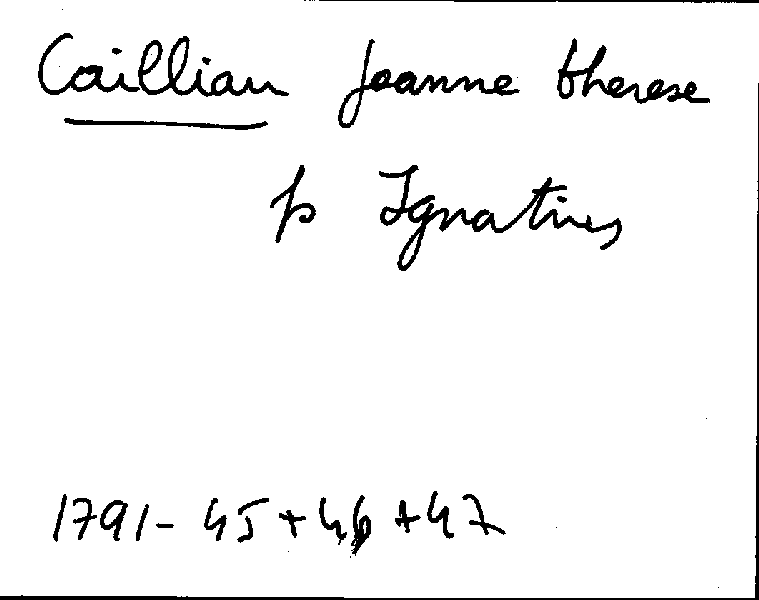 Caillian Joanne therese
p Ignatius
1791- 45+46+47